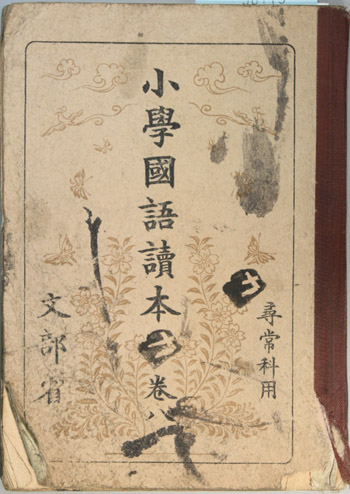 尋常科用
小學國語讀本 卷八
文部省